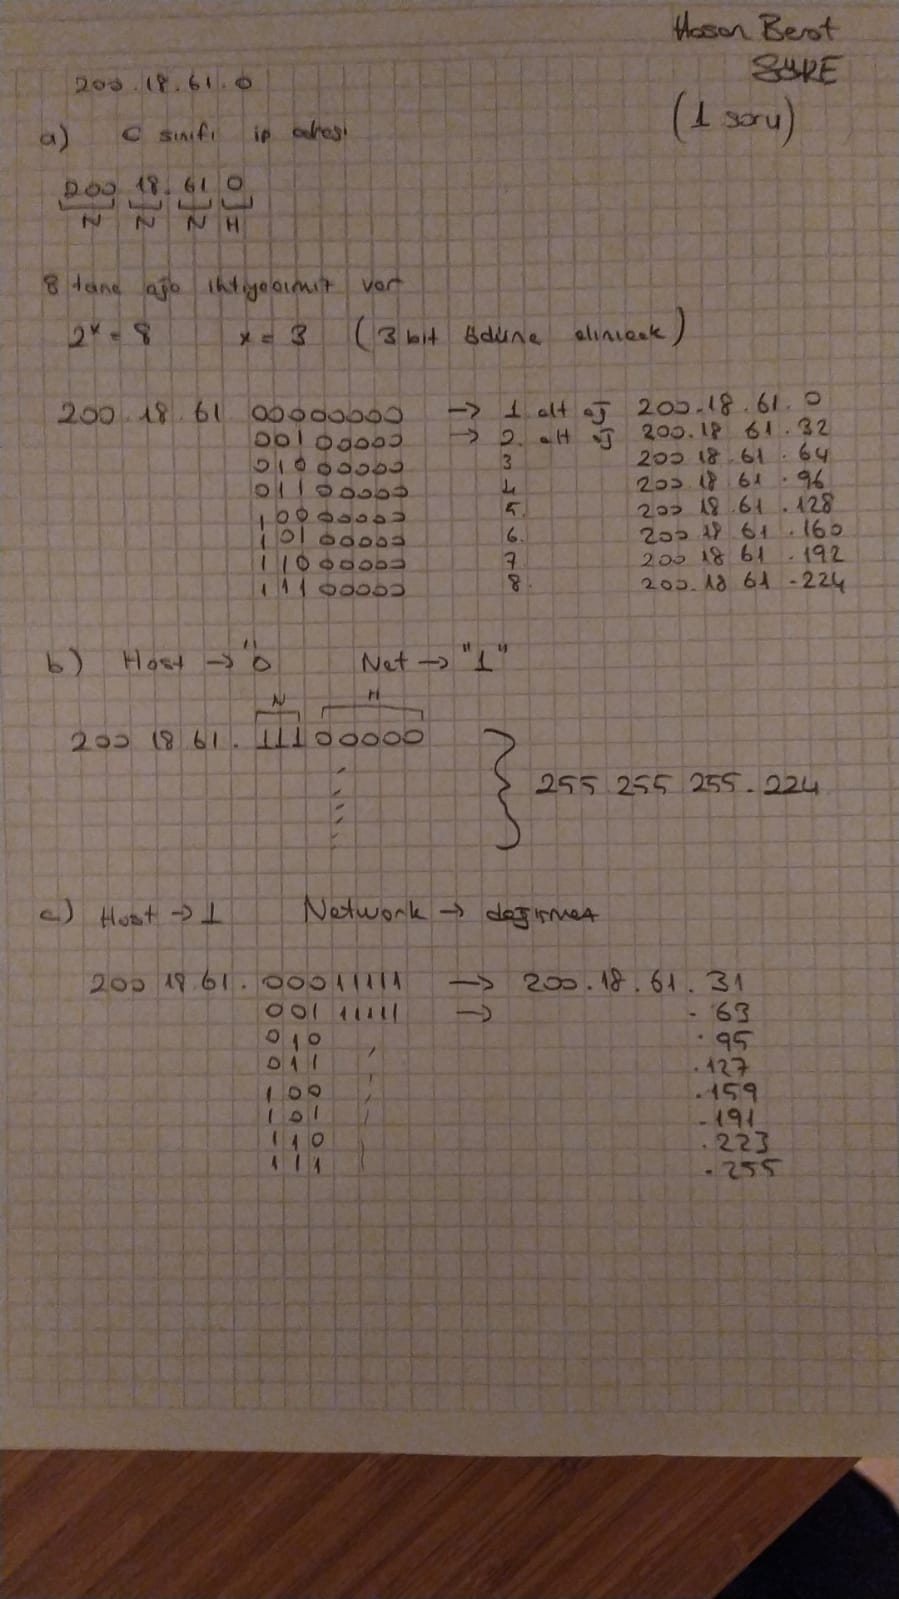 Hasan Berat
SÜRE
(1 soru)
200.18.61.0
a) C sınıfı ip adresi
200 18. 61 0
N N N H
8 tane ağa ihtiyacımız var
2ˣ = 8 x = 3 (3 bit ödünç alınacak)
200.18 61 00000000 → 1. alt ağ 200.18.61.0
00100000 → 2. alt ağ 200.18 61.32
01000000 3 200 18.61.64
01100000 4 200.18 61.96
10000000 5. 200 18.61.128
10100000 6. 200 18 61.160
11000000 7 200 18 61.192
11100000 8. 200.18 61-224
b) Host → "0 Net → "1"
N H
200 18 61. 11100000 } 255 255 255.224
c) Host → 1 Network → değişmez
200 18 61. 00011111 → 200.18.61.31
00111111 → .63
010 .95
011 .127
100 .159
101 .191
110 .223
111 .255